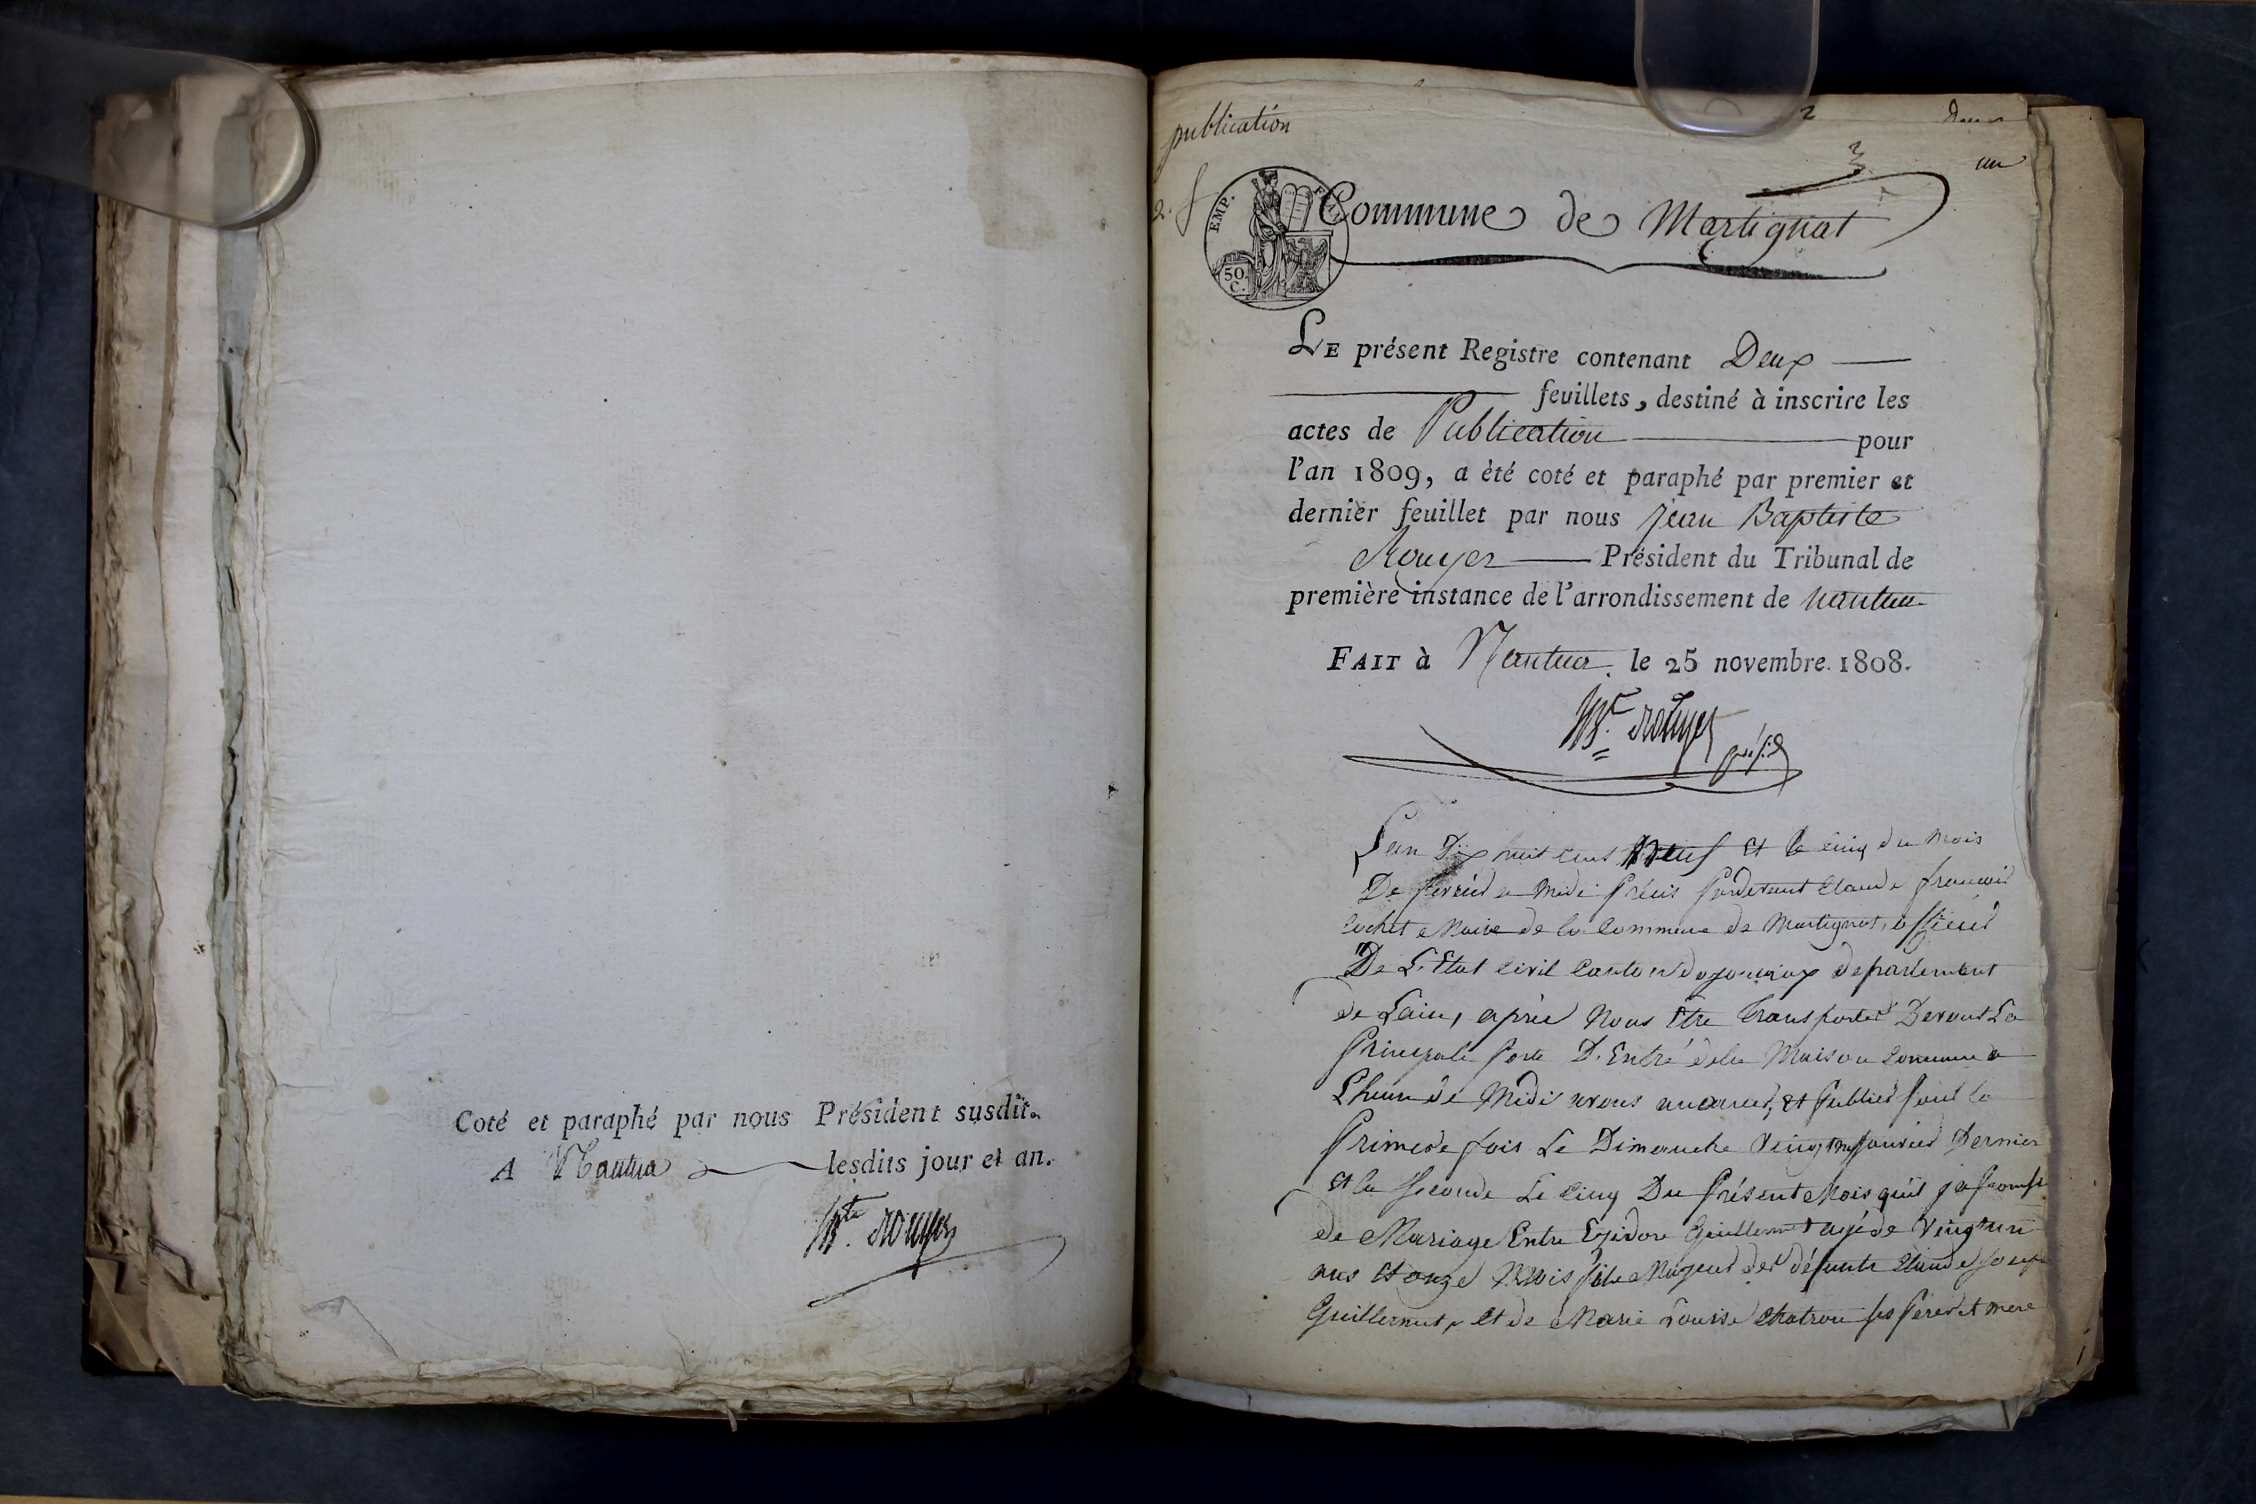 Coté et paraphé par nous Président susdit.
A Nantua lesdits jour et an.
Bte. Rouyer
publication
2
Deux
3
un
2.
EMP. FRA
50 C.
Commune de Martignat
LE présent Registre contenant Deux
feuillets, destiné à inscrire les
actes de Publication pour
l'an 1809, a èté coté et paraphé par premier et
dernièr feuillet par nous Jean Baptiste
Rouyer Président du Tribunal de
première instance de l'arrondissement de nantua
FAIT à Nantua. le 25 novembre. 1808.
Rouyer présid
L'an Dix huit cent Neuf et le cinq du Mois
De fevrier a Midi Précis Pardevant Claude françois
cochet Maire de la Commune de Martignat, officier
De L'Etat Civil Canton doyonnax departement
de Lain, après Nous Etre Transporter Devant La
Principale Porte D'Entré dela Maison Commune a
Lheure de Midi avons anoncer, et Publier Pour la
Primere fois Le Dimanche Vingt neuf Janvier Dernier
et la Seconde Le Cinq Du Présent Mois quil ja Promesse
de Mariage Entre Guillermet agé de Vingt un
ans et onze Mois fils Majeur des défunts Claude Joseph
Guillermet, et de Marie Louise Chatron ses Peres et mere